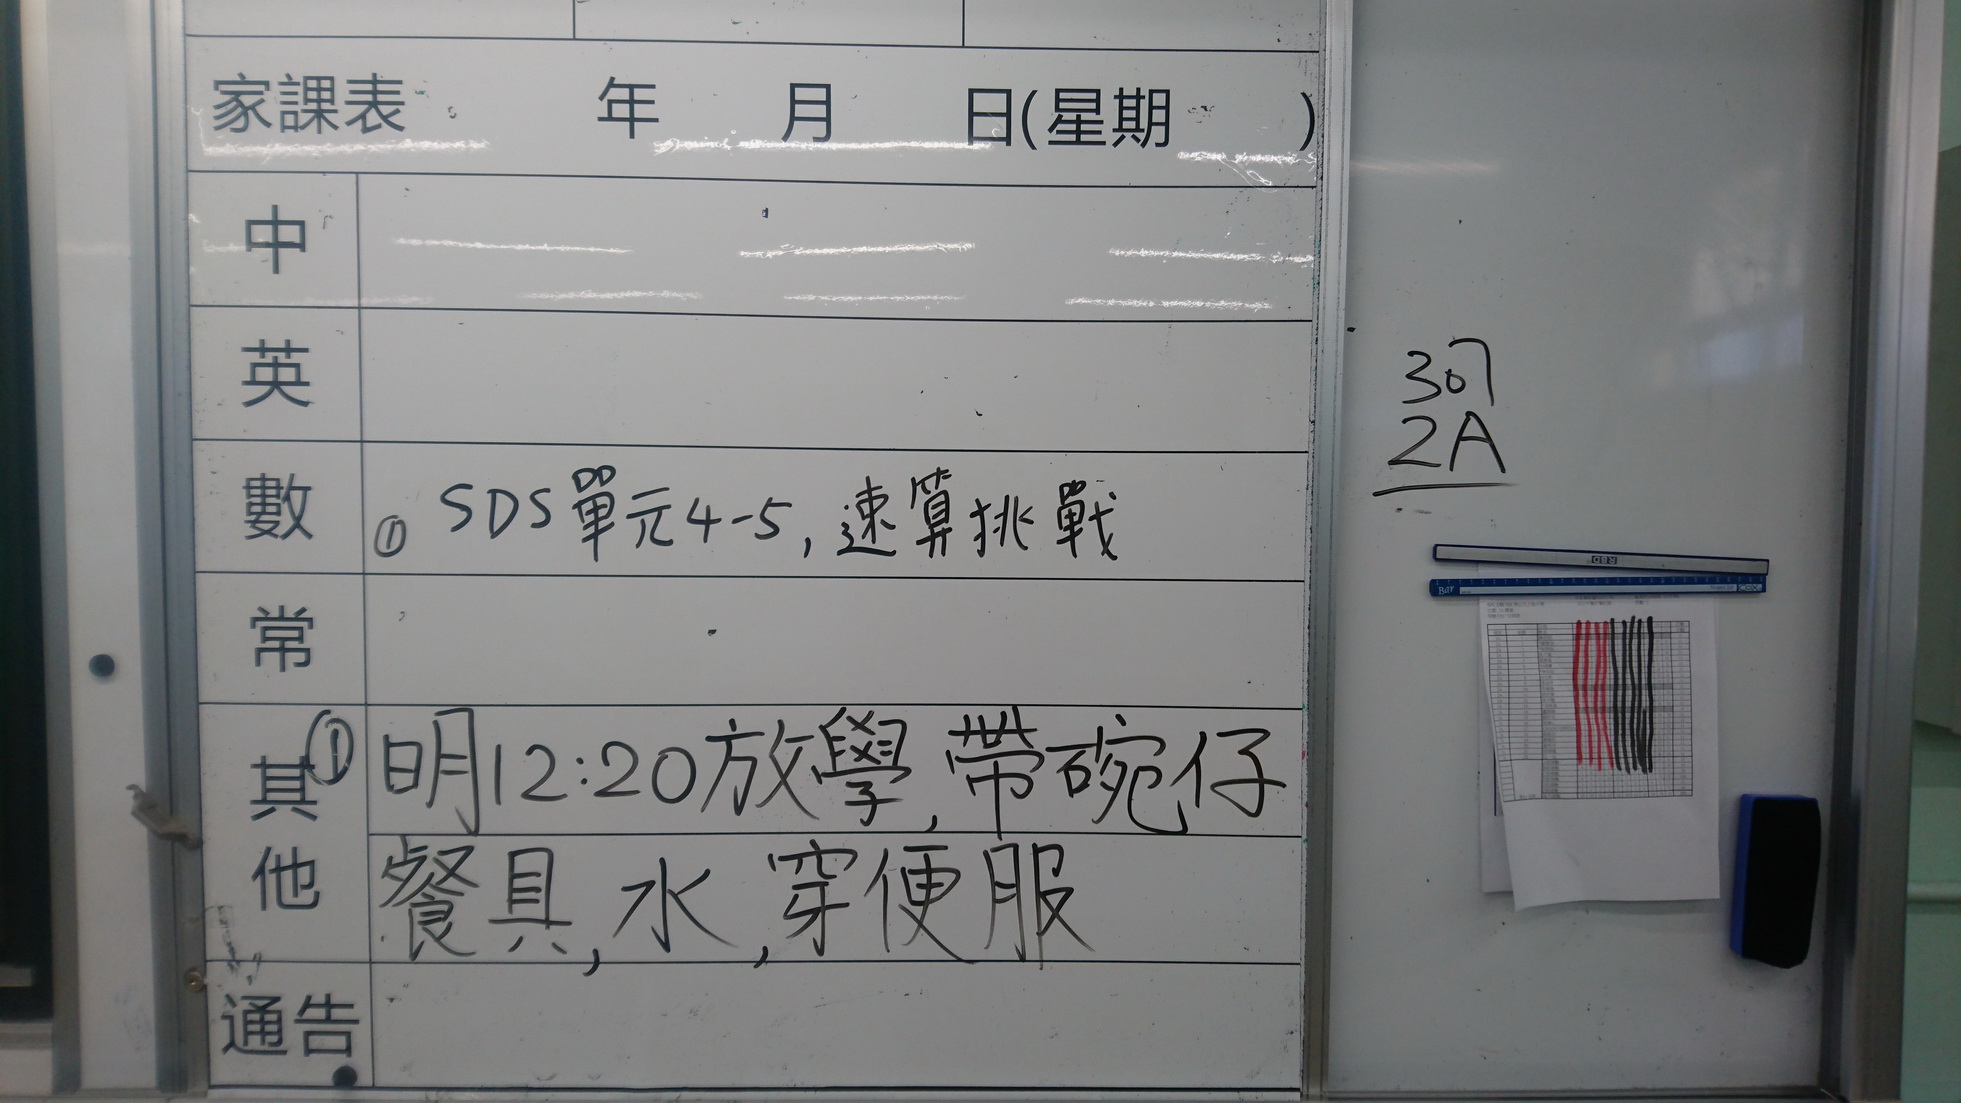 家課表 年 月 日(星期 )
中
英
數 ① SDS單元4-5,速算挑戰
常
其他 ① 明12:20放學,帶碗仔
餐具,水,穿便服
通告
307
2A